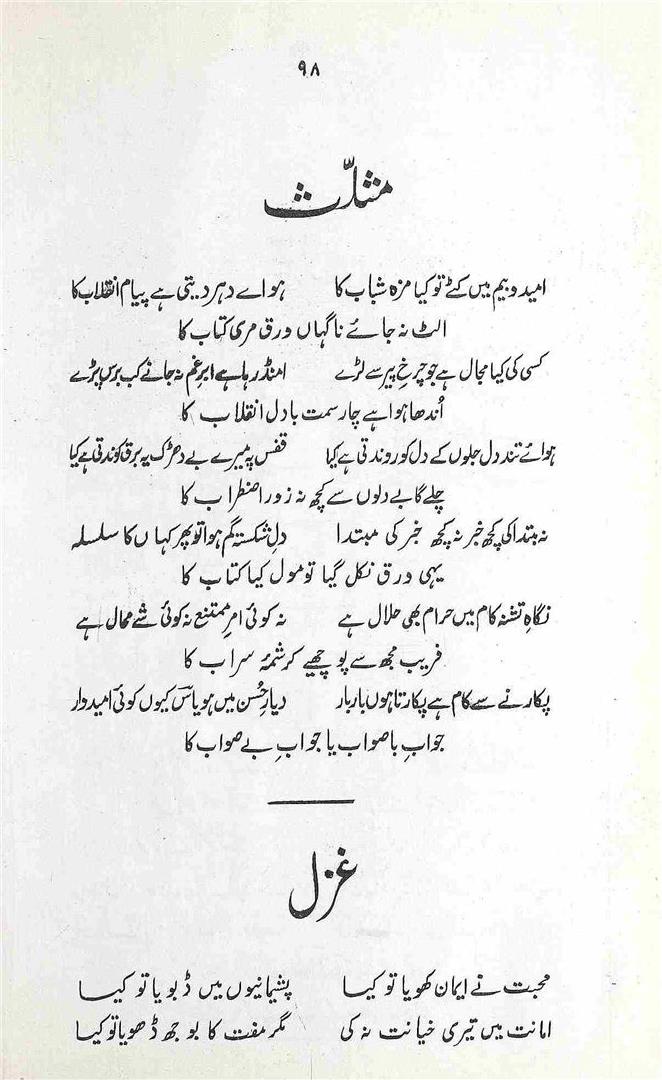 ۹۸
مثلّث
امید و بیم میں کٹے تو کیا مزہ شباب کا ہواے دہر دیتی ہے پیام انقلاب کا
الٹ نہ جائے ناگہاں ورق مری کتاب کا
کسی کی کیا مجال ہے جو چرخِ پیر سے لڑے امنڈ رہا ہے ابرِ غم نہ جانے کب برس پڑے
اُندھا ہوا ہے چار سمت بادل انقلاب کا
ہوائے تند دل جلوں کے دل کو روندتی ہے کیا قفس پہ میرے بے دھڑک یہ برق کوندتی ہے کیا
چلے گا بے دلوں سے کچھ نہ زور اضطراب کا
نہ ابتدا کی کچھ خبر نہ کچھ خبر کی مبتدا دلِ شکستہ گم ہوا تو پھر کہاں کا سلسلہ
یہی ورق نکل گیا تو مول کیا کتاب کا
نگاہِ تشنہ کام میں حرام بھی حلال ہے نہ کوئی امرِ ممتنع نہ کوئی شے محال ہے
فریب مجھ سے پوچھیے کرشمۂ سراب کا
پکارنے سے کام ہے پکارتا ہوں بار بار دیارِ حُسن میں ہو یاسؔ کیوں کوئی امیدوار
جوابِ با صواب یا جوابِ بے صواب کا
غزل
محبت نے ایمان کھویا تو کیا پشیمانیوں میں ڈبویا تو کیا
امانت میں تیری خیانت نہ کی مگر مفت کا بوجھ ڈھویا تو کیا